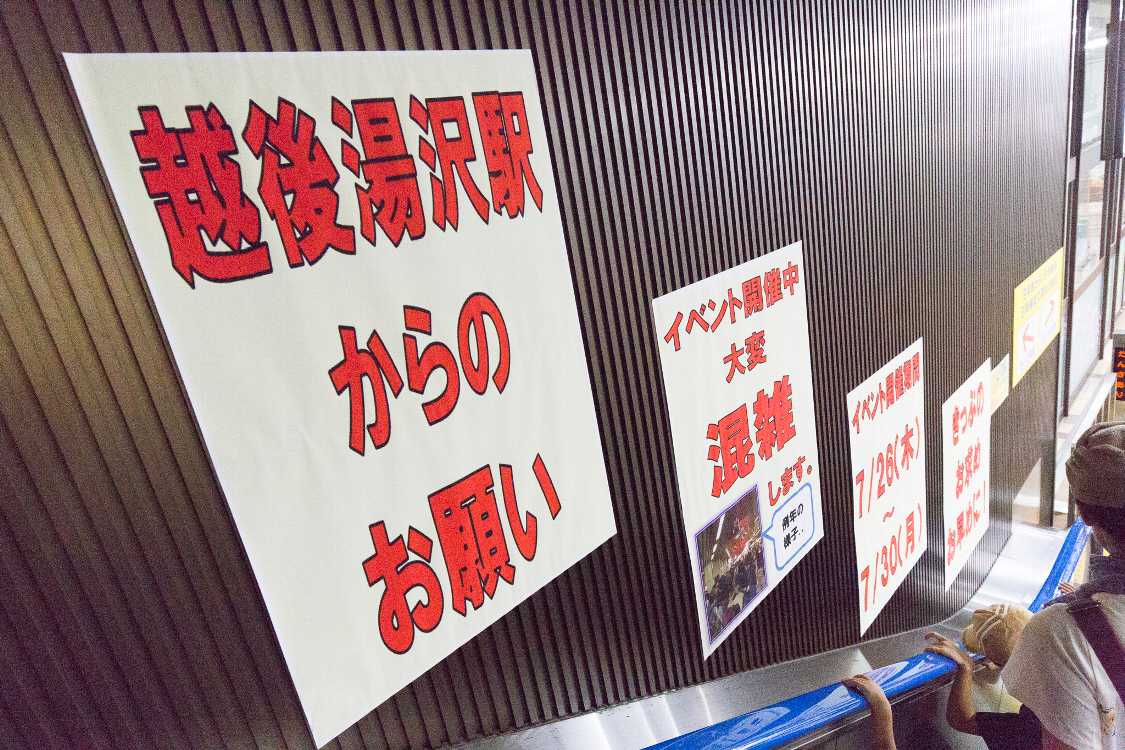 越後湯沢駅
からの
お願い
イベント開催中
大変
混雑
します。
例年の
様子..
イベント開催期間
7/26(木)
～
7/30(月)
きっぷの
お求め
お早めに!